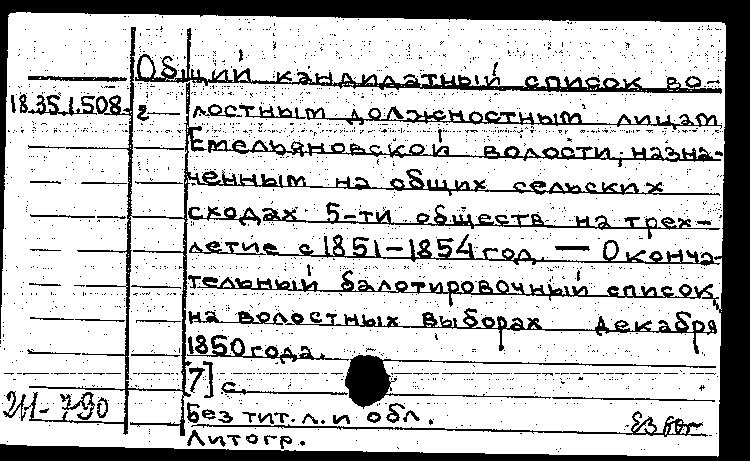 Общий кандидатный список во-
18.35.1.508-2 лостным должностным лицам
Емельяновской волости, назна-
ченным на общих сельских
сходах 5-ти обществ на трех-
летие с 1851-1854 год. — Оконча-
тельный балотировочный список
на волостных выборах декабря
1850 года.
[7] с.
Без тит. л. и обл.
Литогр.